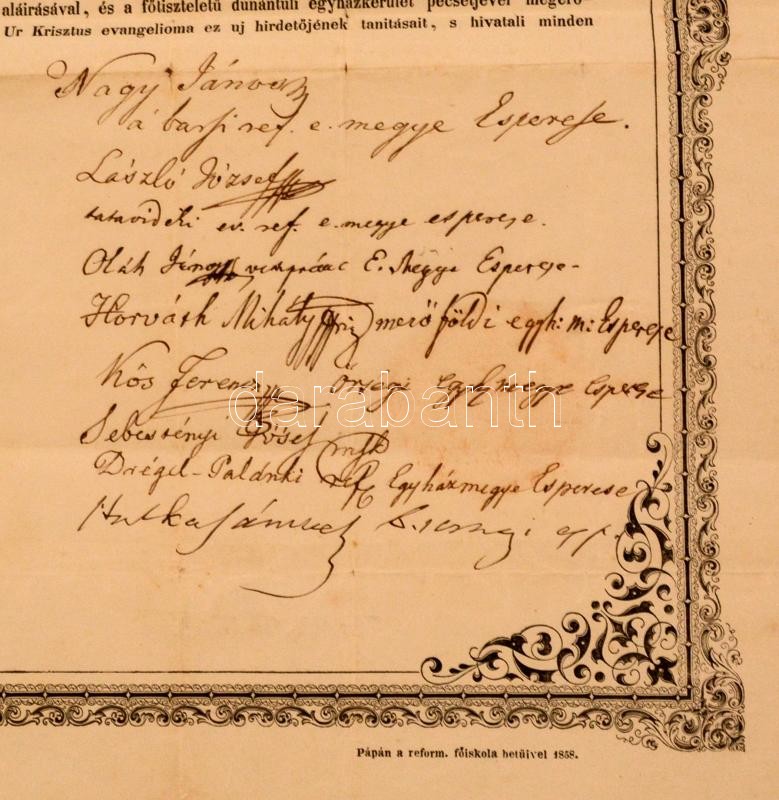 aláirásával, és a főtiszteletü dunántuli egyházkerület pecsétjével megerő-
Ur Krisztus evangelioma ez uj hirdetőjének tanitásait, s hivatali minden
Nagy János
a barsi ref. e. megye Esperese.
László József
tatavidéki ev. ref. e. megye esperese.
Oláh János E. Megye Esperese
Horváth Mihály mező földi egyh: m: Esperese
Kös Ferencz őrségi Egyhmegye esperese
Sebestényi Jósef mk
Drégel-Palánki ref Egyházmegye Esperese
darabanth
Pápán a reform. főiskola betüivel 1858.